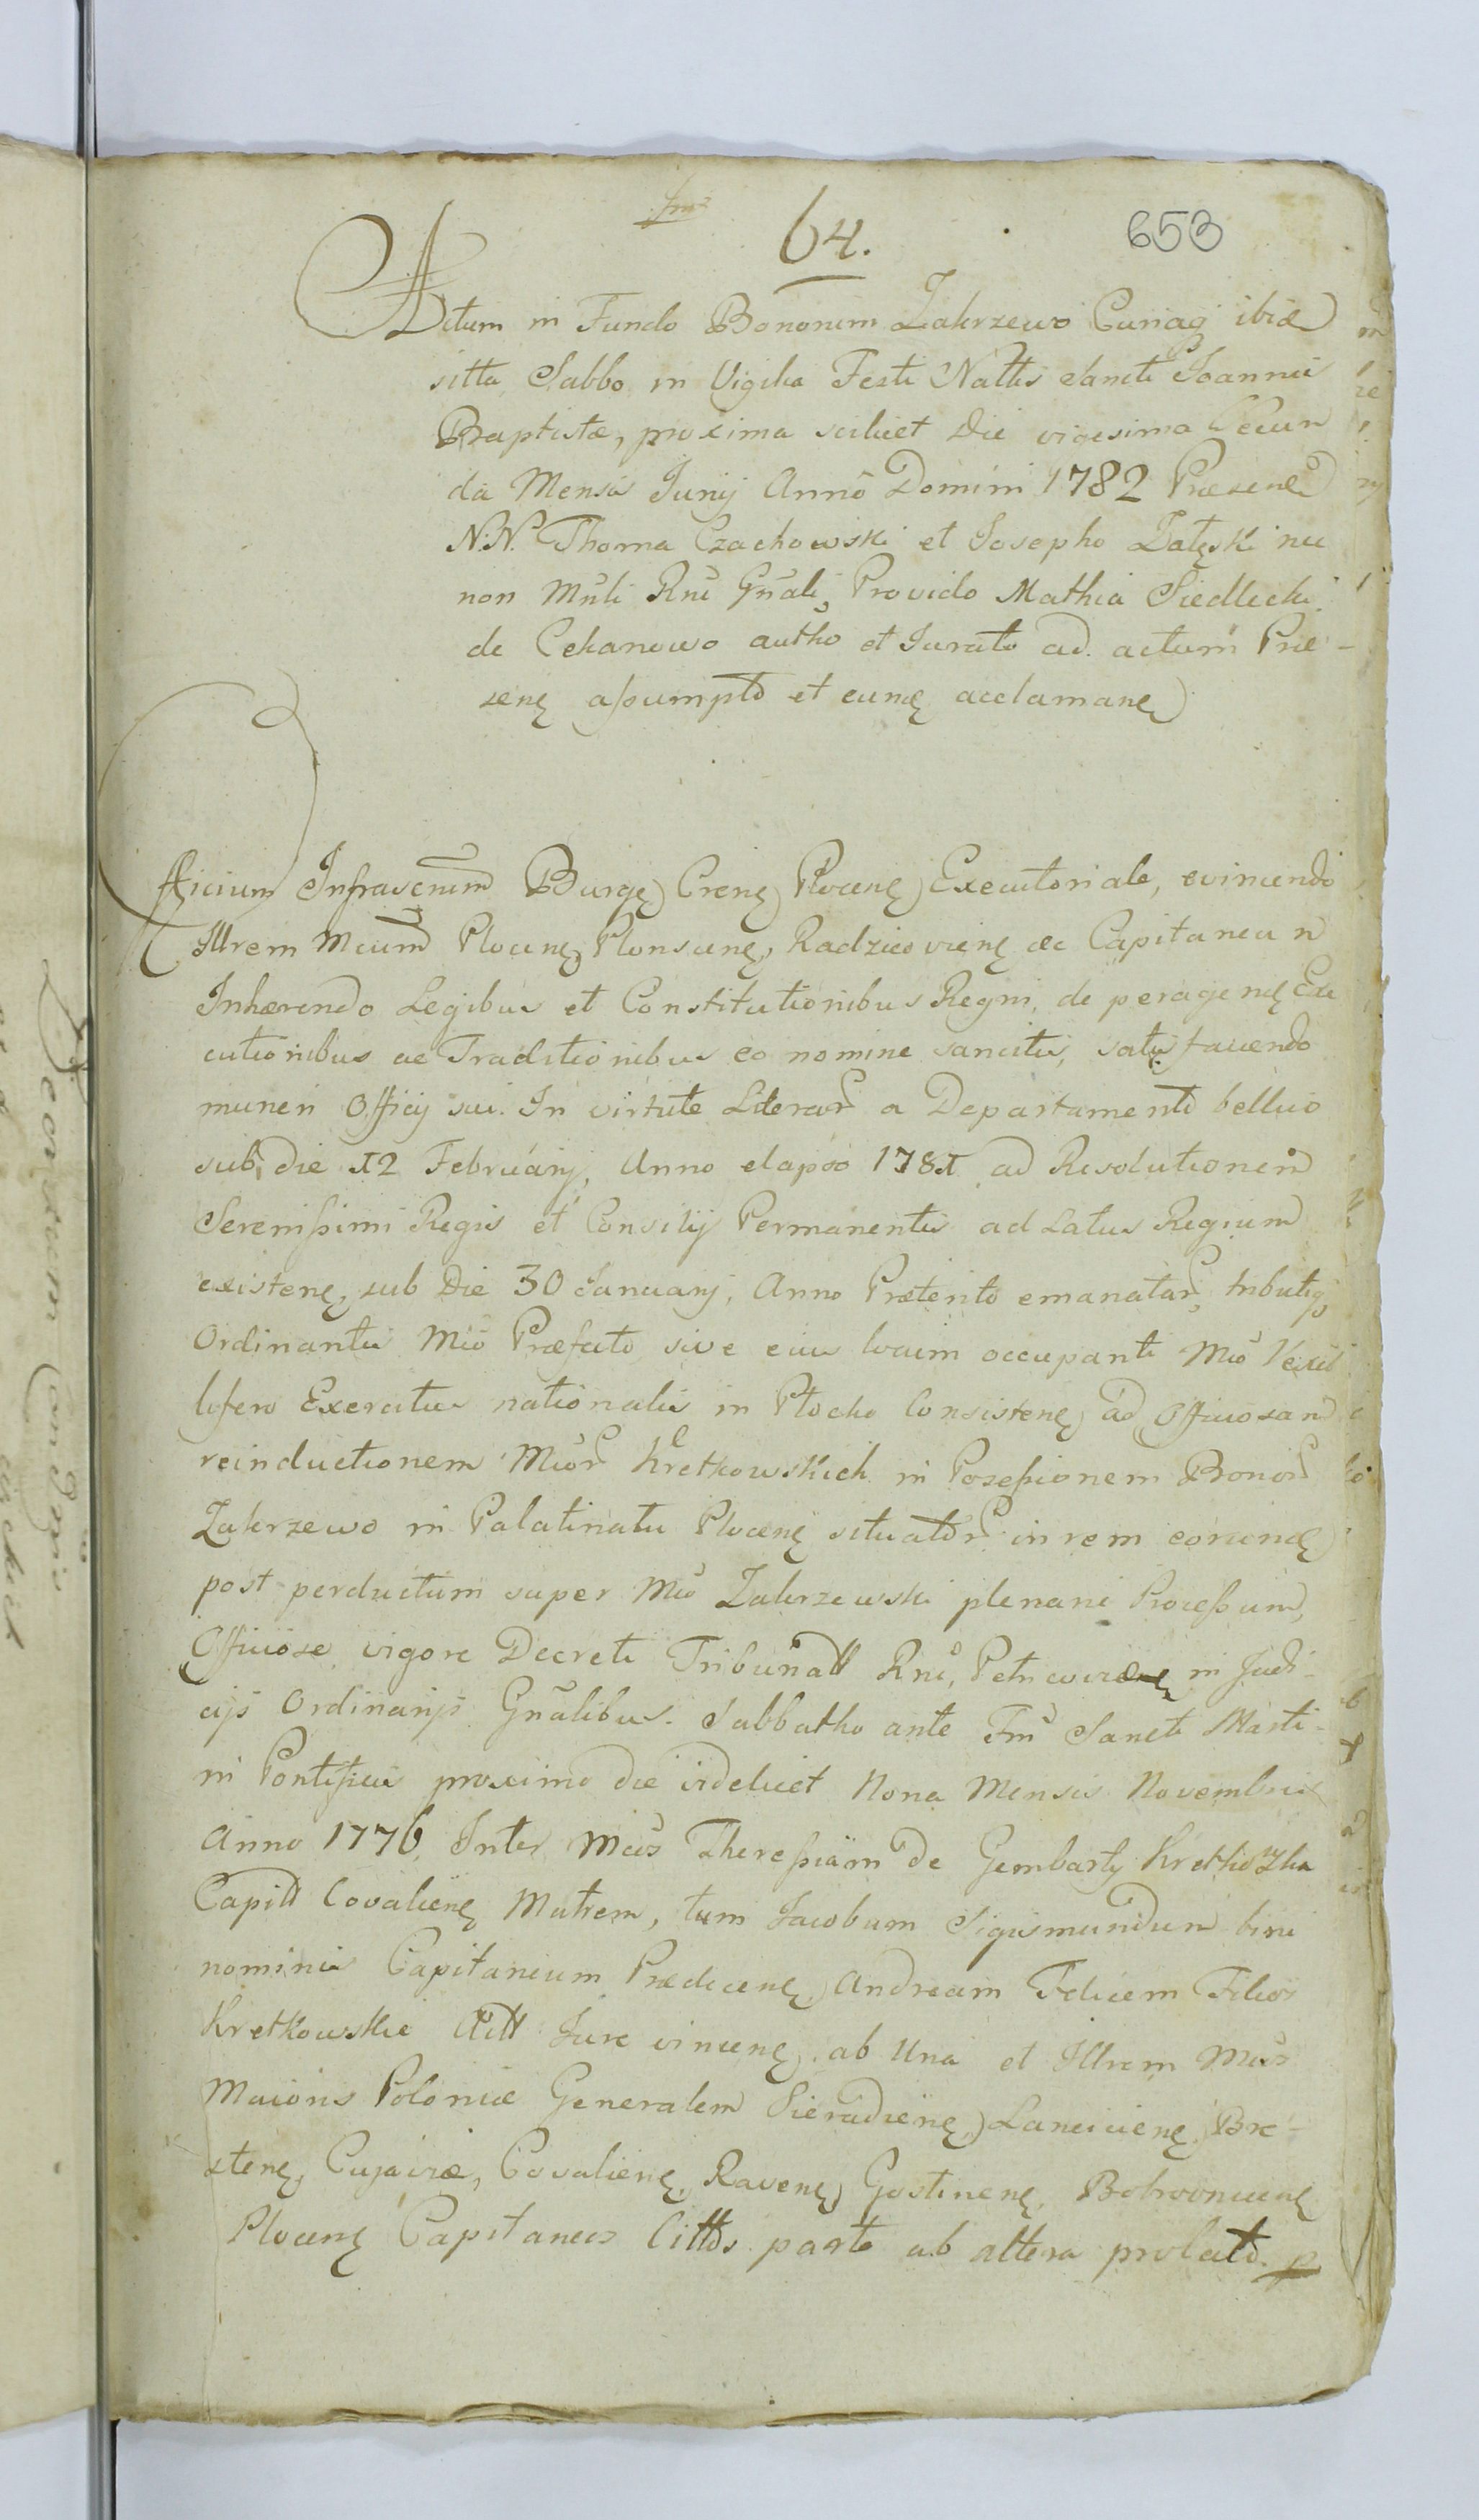 64.
653
Actum in Fundo Bonorum Zakrzewo Curiaq ibid
sitta Sabbo in Vigilia Festi Nattis Sancti Joannis
Baptistæ, proxima scilicet Die vigesima Secun
da Mensis Junij Annô Domini 1782 Præsenę
N.N. Thoma Czachowski et Josepho Załęski nec
non Mnli Rni Gnali Provido Mathia Siedlecki
de Cekanowo autho et Jurato ad actum Præ-
senę assumpto et eundę acclamanę
fficium Infrascrium Burgę Crenę Plocenę Executoriale, evincendo
Illrem Mcum Plocenę, Plonscenę, Radzieovienę ac Capitaneum
Inhærendo Legibus et Constitutionibus Regni, de peragendę Exe
cutionibus ac Traditionibus eo nomine sancitis, satisfaciendo
muneri Officij sui. In virtute Literar a Departamento bellico
sub die 12 Februarij, Anno elapso 1781 ad Resolutionem
Serenissimi Regis et Consilij Permanentis ad Latus Regium
existenę, sub Die 30 Januarij, Anno Præterito emanatar, tributiq
Ordinantis Mco Præfecto sive eius locum occupanti Mco Vexil
lifero Exercitus nationalis in Plocko Consistenę, ad Officiosam
reinductionem Mcor Kretkowskich in Possessionem Bonor
Zakrzewo in Palatinatu Plocenę situator in rem eorundę
post perductum super Mco Zakrzewski plenarie Processum,
Officiose vigore Decreti Tribunall Rni, Petricoviænę in Judi-
cijs Ordinarijs Gnalibus. Sabbatho ante Fm Sancti Marti-
ni Pontificis proximo die videlicet Nona Mensis Novembris
Anno 1776 Inter Mcos Theressiam de Gembarty Kretkowska
Capitt Covalienę Matrem, tum Jacobum Sigismundum bini
nominis Capitaneum Prædecenę, Andream Felicem Filios
Kretkowskie Actt Jure vincenę, ab Una et Illrem Mcos
Maioris Poloniæ Generalem Sieradienę, Lancicienę, Bre-
stenę, Cujaviæ, Covalienę, Ravenę, Gostinenę, Bobrovnicenę
Plocenę Capitaneos Cittos parte ab altera prolato. p